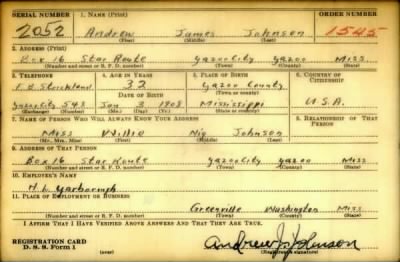 SERIAL NUMBER 1. NAME (Print) ORDER NUMBER
2052 Andrew James Johnson 1545
(First) (Middle) (Last)
2. ADDRESS (Print)
Box 16 Star Route Yazoo City Yazoo Miss
(Number and street or R. F. D. number) (Town) (County) (State)
3. TELEPHONE 4. AGE IN YEARS 5. PLACE OF BIRTH 6. COUNTRY OF CITIZENSHIP
Strickland 32 Yazoo County
DATE OF BIRTH (Town or county)
Yazoo City 548 Jan 3 1908 Mississippi U.S.A.
(Exchange) (Number) (Mo.) (Day) (Yr.) (State or country)
7. NAME OF PERSON WHO WILL ALWAYS KNOW YOUR ADDRESS 8. RELATIONSHIP OF THAT PERSON
Miss Willie Johnson
(Mr., Mrs., Miss) (First) (Middle) (Last)
9. ADDRESS OF THAT PERSON
Box 16 Star Route Yazoo City Yazoo Miss
(Number and street or R. F. D. number) (Town) (County) (State)
10. EMPLOYER'S NAME
H. W. Yarborough
11. PLACE OF EMPLOYMENT OR BUSINESS
Greenville Washington Miss
(Number and street or R. F. D. number) (Town) (County) (State)
I AFFIRM THAT I HAVE VERIFIED ABOVE ANSWERS AND THAT THEY ARE TRUE.
REGISTRATION CARD
D. S. S. Form 1 (over) Andrew J. Johnson